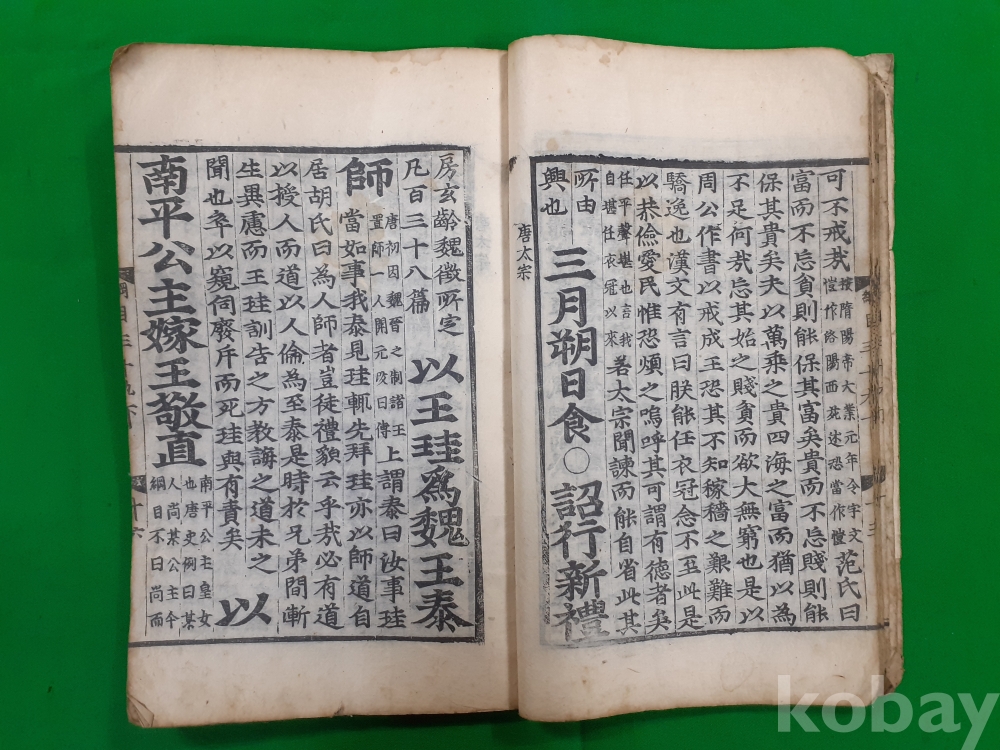 可不戒哉
按隋陽帝大業元年令宇文
愷作洛陽西苑述恐當作愷
范氏曰
富而不忘貧則能保其富矣貴而不忘賤則能
保其貴矣夫以萬乘之貴四海之富而猶以為
不足何哉忘其始之賤貧而欲大無窮也是以
周公作書以戒成王恐其不知稼穡之艱難而
驕逸也漢文有言曰朕能任衣冠念不至此是
以恭儉愛民惟恐煩之嗚呼其可謂有德者矣
任平聲堪也言我
自堪任衣冠以來
若太宗聞諫而能自省此其
所由
興也
三月朔日食○詔行新禮
唐太宗
房玄齡魏徵所定
凡百三十八篇
以王珪爲魏王泰
師
唐初因魏晉之制諸王
置師一人開元改曰傅
上謂泰曰汝事珪
當如事我泰見珪輒先拜珪亦以師道自
居胡氏曰為人師者豈徒禮貌云乎哉必有道
以授人而道以人倫為至泰是時於兄弟間漸
生異慮而王珪訓告之方教誨之道未之
聞也卒以窺伺廢斥而死珪與有責矣
以
南平公主嫁王敬直
南平公主皇女
也唐史例曰某
人尚某公主今
綱目不曰尚而
十六
kobay